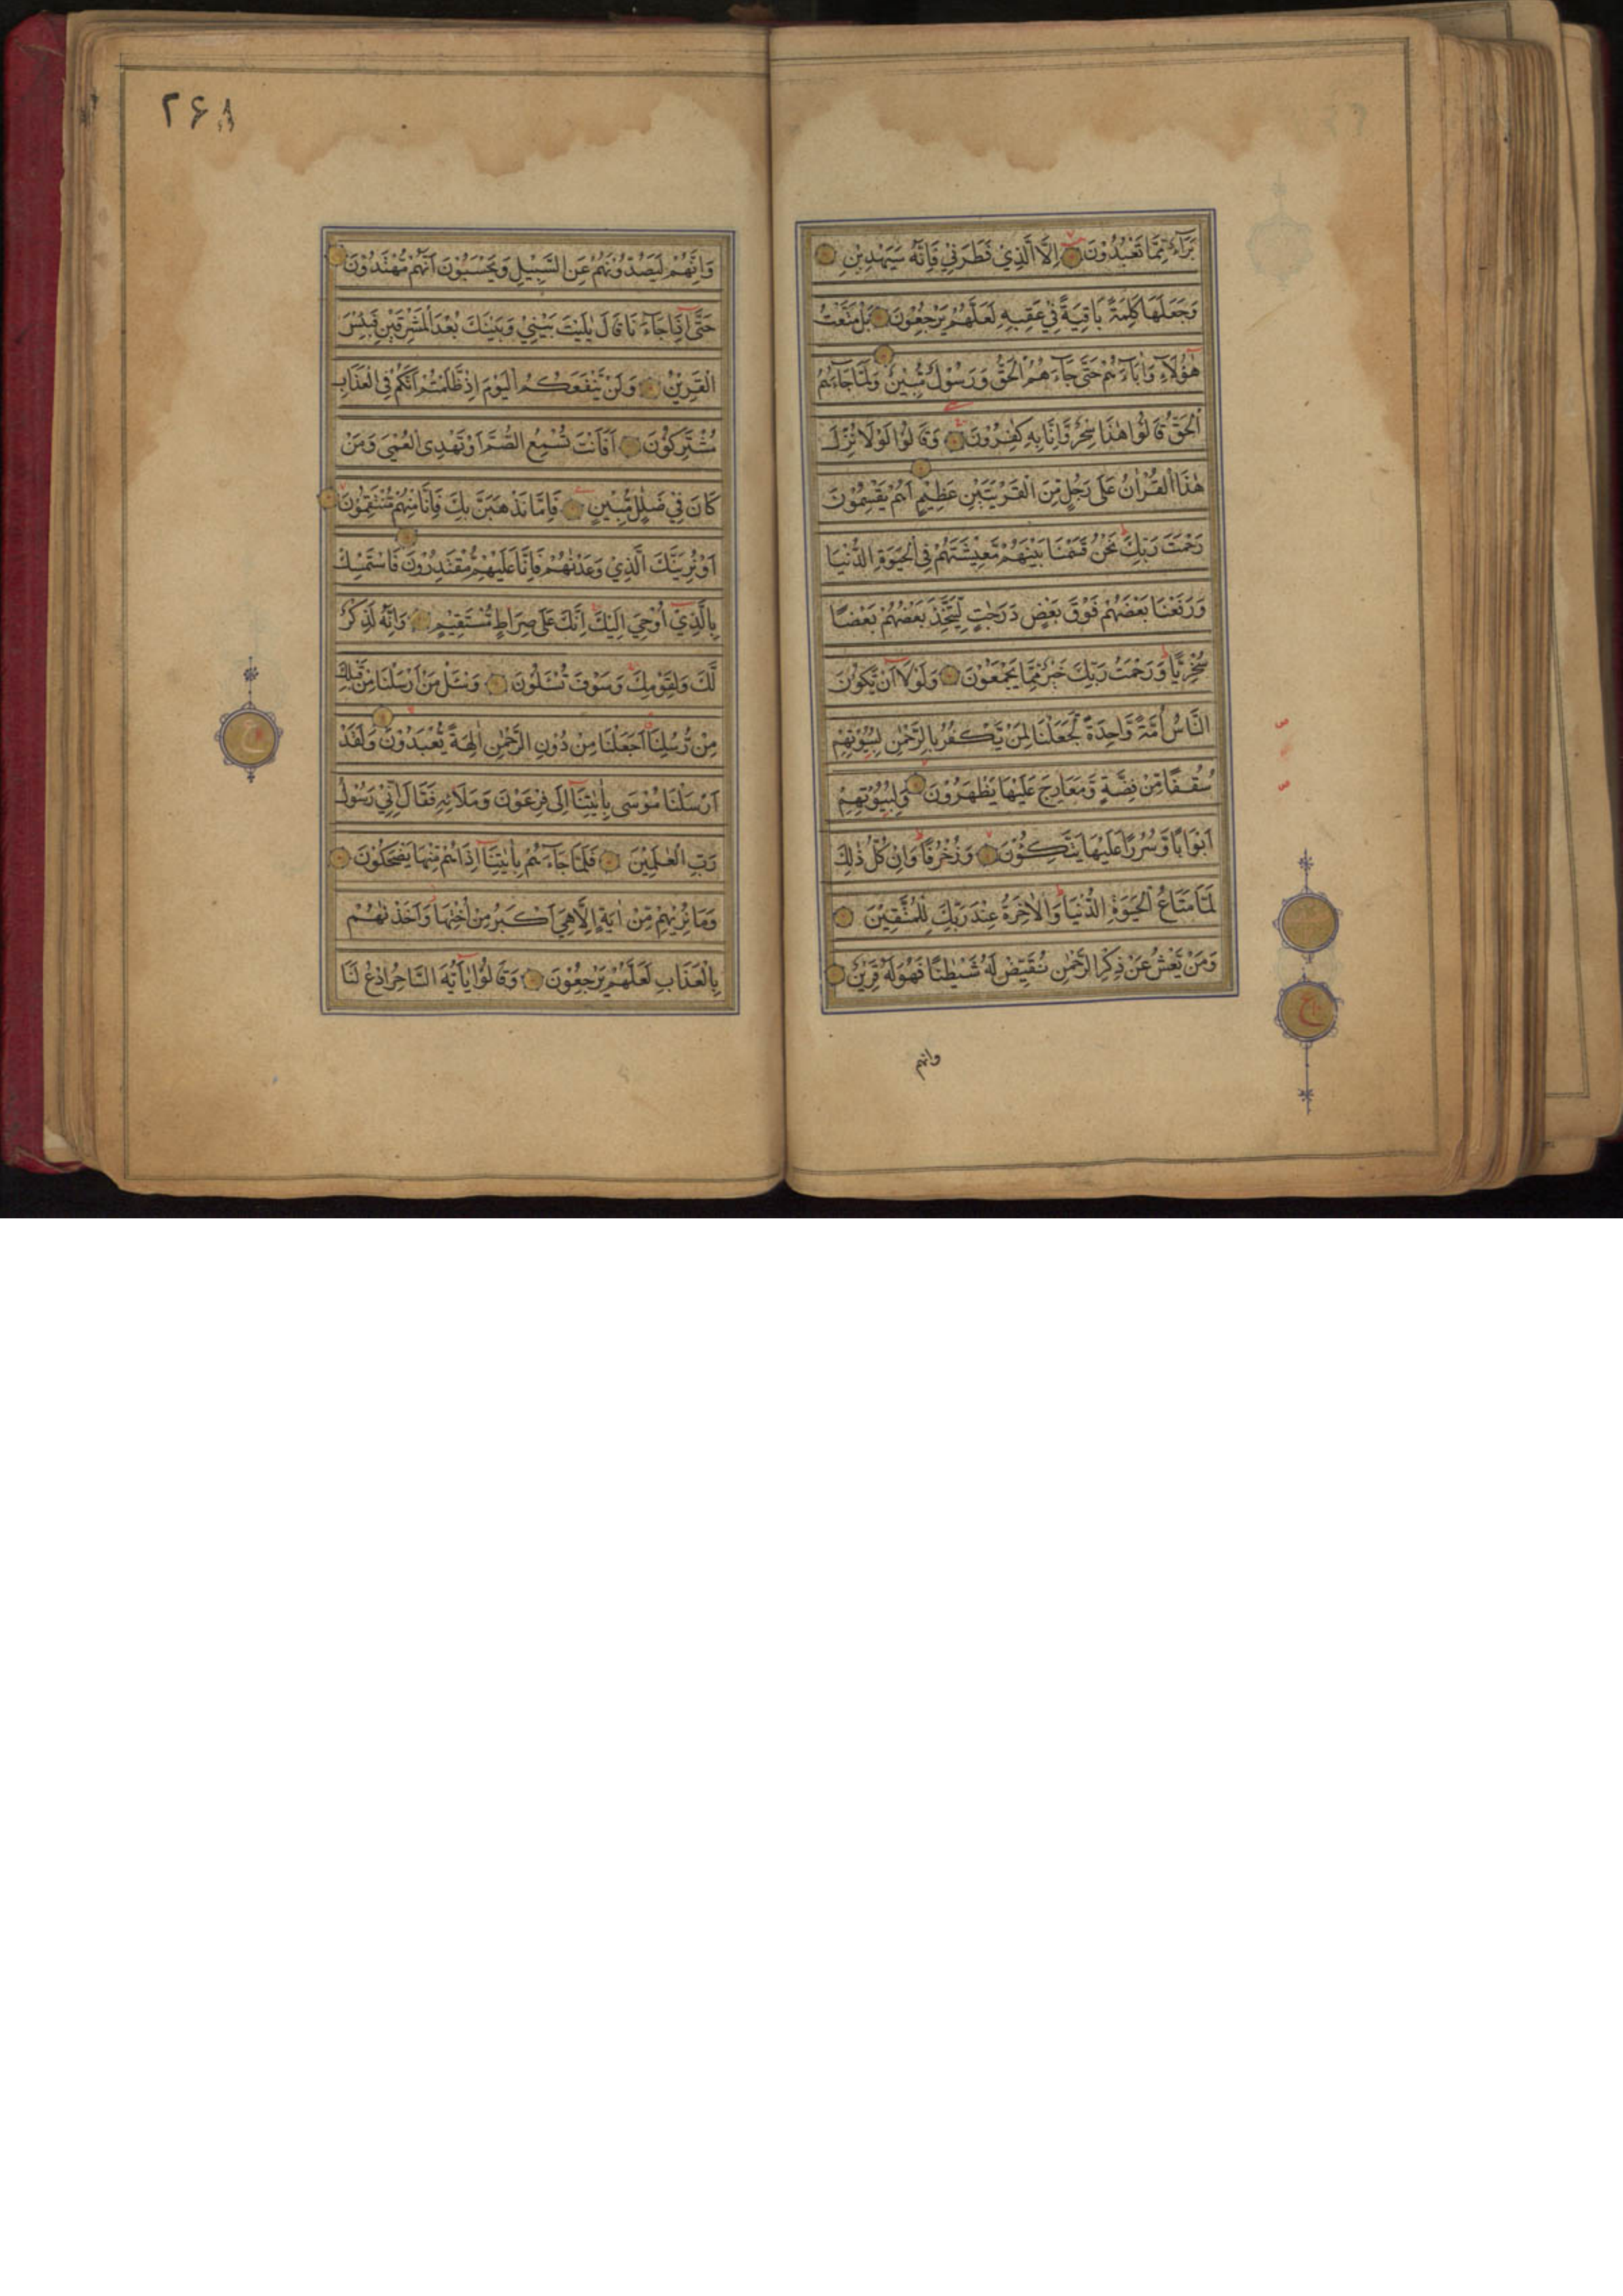 بَرَآءٌ مِّمَّا تَعْبُدُوْنَ اِلَّا الَّذِيْ فَطَرَنِيْ فَاِنَّهٗ سَيَهْدِيْنِ
وَجَعَلَهَا كَلِمَةً بَاقِيَةً فِيْ عَقِبِهٖ لَعَلَّهُمْ يَرْجِعُوْنَ بَلْ مَتَّعْتُ
هٰٓؤُلَآءِ وَاٰبَآءَهُمْ حَتّٰى جَآءَهُمُ الْحَقُّ وَرَسُوْلٌ مُّبِيْنٌ وَلَمَّا جَآءَهُمُ
الْحَقُّ قَالُوْا هٰذَا سِحْرٌ وَّاِنَّا بِهٖ كٰفِرُوْنَ وَقَالُوْا لَوْلَا نُزِّلَ
هٰذَا الْقُرْاٰنُ عَلٰى رَجُلٍ مِّنَ الْقَرْيَتَيْنِ عَظِيْمٍ اَهُمْ يَقْسِمُوْنَ
رَحْمَتَ رَبِّكَ نَحْنُ قَسَمْنَا بَيْنَهُمْ مَّعِيْشَتَهُمْ فِي الْحَيٰوةِ الدُّنْيَا
وَرَفَعْنَا بَعْضَهُمْ فَوْقَ بَعْضٍ دَرَجٰتٍ لِّيَتَّخِذَ بَعْضُهُمْ بَعْضًا
سُخْرِيًّا وَرَحْمَتُ رَبِّكَ خَيْرٌ مِّمَّا يَجْمَعُوْنَ وَلَوْلَآ اَنْ يَّكُوْنَ
النَّاسُ اُمَّةً وَّاحِدَةً لَّجَعَلْنَا لِمَنْ يَّكْفُرُ بِالرَّحْمٰنِ لِبُيُوْتِهِمْ
سُقُفًا مِّنْ فِضَّةٍ وَّمَعَارِجَ عَلَيْهَا يَظْهَرُوْنَ وَلِبُيُوْتِهِمْ
اَبْوَابًا وَّسُرُرًا عَلَيْهَا يَتَّكِـُٔوْنَ وَزُخْرُفًا وَاِنْ كُلُّ ذٰلِكَ
لَمَّا مَتَاعُ الْحَيٰوةِ الدُّنْيَا وَالْاٰخِرَةُ عِنْدَ رَبِّكَ لِلْمُتَّقِيْنَ
وَمَنْ يَّعْشُ عَنْ ذِكْرِ الرَّحْمٰنِ نُقَيِّضْ لَهٗ شَيْطٰنًا فَهُوَ لَهٗ قَرِيْنٌ
وانهم
ع
۲۶۸
وَاِنَّهُمْ لَيَصُدُّوْنَهُمْ عَنِ السَّبِيْلِ وَيَحْسَبُوْنَ اَنَّهُمْ مُّهْتَدُوْنَ
حَتّٰىٓ اِذَا جَآءَنَا قَالَ يٰلَيْتَ بَيْنِيْ وَبَيْنَكَ بُعْدَ الْمَشْرِقَيْنِ فَبِئْسَ
الْقَرِيْنُ وَلَنْ يَّنْفَعَكُمُ الْيَوْمَ اِذْ ظَّلَمْتُمْ اَنَّكُمْ فِي الْعَذَابِ
مُشْتَرِكُوْنَ اَفَاَنْتَ تُسْمِعُ الصُّمَّ اَوْ تَهْدِي الْعُمْيَ وَمَنْ
كَانَ فِيْ ضَلٰلٍ مُّبِيْنٍ فَاِمَّا نَذْهَبَنَّ بِكَ فَاِنَّا مِنْهُمْ مُّنْتَقِمُوْنَ
اَوْ نُرِيَنَّكَ الَّذِيْ وَعَدْنٰهُمْ فَاِنَّا عَلَيْهِمْ مُّقْتَدِرُوْنَ فَاسْتَمْسِكْ
بِالَّذِيْٓ اُوْحِيَ اِلَيْكَ اِنَّكَ عَلٰى صِرَاطٍ مُّسْتَقِيْمٍ وَاِنَّهٗ لَذِكْرٌ
لَّكَ وَلِقَوْمِكَ وَسَوْفَ تُسْـَٔلُوْنَ وَسْـَٔلْ مَنْ اَرْسَلْنَا مِنْ قَبْلِكَ
مِنْ رُّسُلِنَآ اَجَعَلْنَا مِنْ دُوْنِ الرَّحْمٰنِ اٰلِهَةً يُّعْبَدُوْنَ وَلَقَدْ
اَرْسَلْنَا مُوْسٰى بِاٰيٰتِنَآ اِلٰى فِرْعَوْنَ وَمَلَا۟ئِهٖ فَقَالَ اِنِّيْ رَسُوْلُ
رَبِّ الْعٰلَمِيْنَ فَلَمَّا جَآءَهُمْ بِاٰيٰتِنَآ اِذَا هُمْ مِّنْهَا يَضْحَكُوْنَ
وَمَا نُرِيْهِمْ مِّنْ اٰيَةٍ اِلَّا هِيَ اَكْبَرُ مِنْ اُخْتِهَا وَاَخَذْنٰهُمْ
بِالْعَذَابِ لَعَلَّهُمْ يَرْجِعُوْنَ وَقَالُوْا يٰٓاَيُّهَ السَّاحِرُ ادْعُ لَنَا